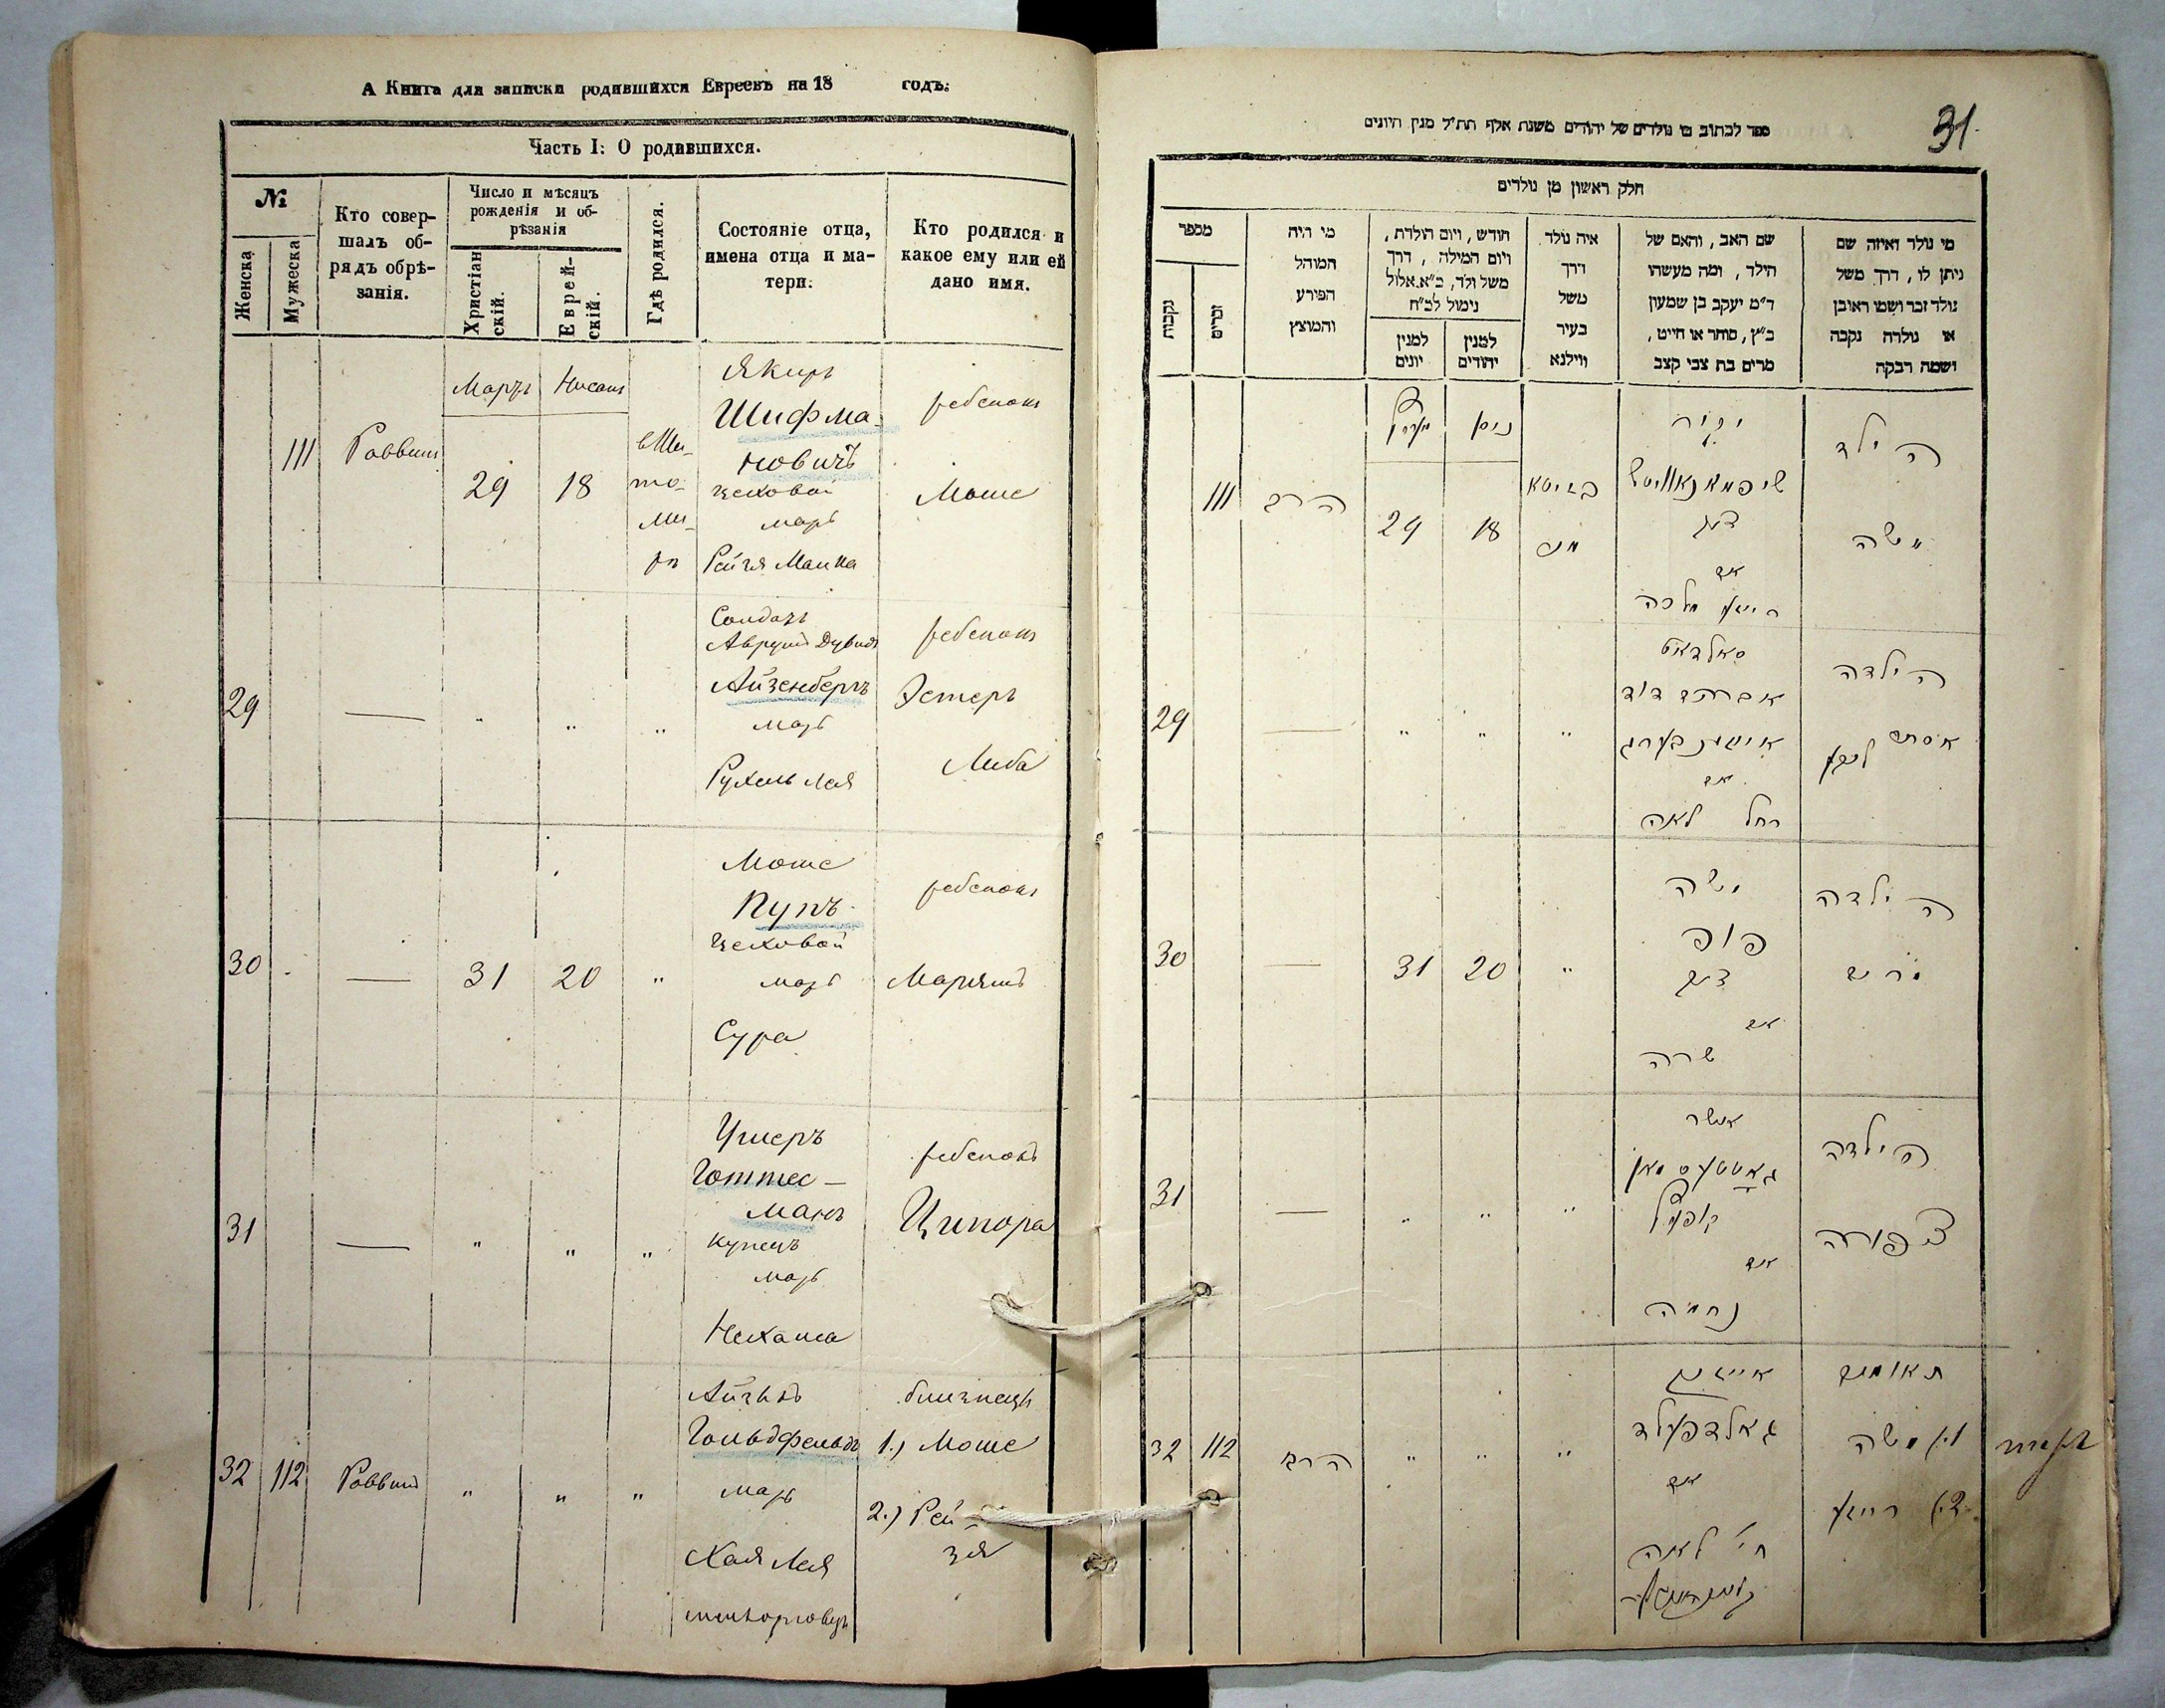 А Книга для записки родившихся Евреевъ на 18 годъ.
Часть I: О родившихся.
№
Женска
Мужеска
Кто совер-
шалъ об-
рядъ обрѣ-
занія.
Число и мѣсяцъ
рожденія и об-
рѣзанія
Христіан
скій.
Еврей-
скій.
Гдѣ родился.
Состояніе отца,
имена отца и ма-
тери.
Кто родился и
какое ему или ей
дано имя.
111
Раввинъ
Мартъ
29
Нисанъ
18
въ Жи-
то-
ми-
рѣ
Якиръ
Шифма-
новичъ
цеховой
мать
Рейзя Малка
ребенокъ
Моше
29
—
"
"
"
Солдатъ
Аврумъ Дувидъ
Айзенбергъ
мать
Рухель Лея
ребенокъ
Эстеръ
Либа
30
—
31
20
"
Моше
Пупъ
цеховой
мать
Сура
ребенокъ
Марямъ
31
—
"
"
"
Ушеръ
Готтес-
манъ
купецъ
мать
Нехама
ребенокъ
Ципора
32
112
Раввинъ
"
"
"
Айзикъ
Гольдфельдъ
мать
Хая Лея
близнецы
1.) Моше
2.) Рей-
зя
31.
ספר לכתוב בו נולדים של יהודים משנת אלף תת״ל מנין היונים
חלק ראשון מן נולדים
מספר
נקבות
זכרים
מי היה
המוהל
הפורע
והמוצץ
חודש, ויום הולדת,
ויום המילה, דרך
משל ולד, כ״א אלול
נימול לכ״ח
למנין
יונים
למנין
יהודים
איה נולד
דרך
משל
בעיר
ווילנא
שם האב, והאם של
הילד, ומה מעשהו
ד״מ יעקב בן שמעון
כ״ץ, סוחר או חייט,
מרים בת צבי קצב
מי נולד ואיזה שם
ניתן לו, דרך משל
נולד זכר ושמו ראובן
או נולדה נקבה
ושמה רבקה
111
הרב
29
ניסן
18
יקיר
שיפמאנאוויטש
אם
רייזא מלכה
הילד
משה
29
—
"
"
"
סאלדאט
אברהם דוד
אייזענבערג
אם
רחל לאה
הילדה
אסתר ליבא
30
—
31
20
"
משה
פופ
אם
שרה
הילדה
מרים
31
—
"
"
"
אשר
גאטטעסמאן
אם
נחמה
הילדה
צפורה
32
112
הרב
"
"
"
אייזיק
גאלדפעלד
אם
חי' לאה
תאומים
1.) משה
2.) רייזא